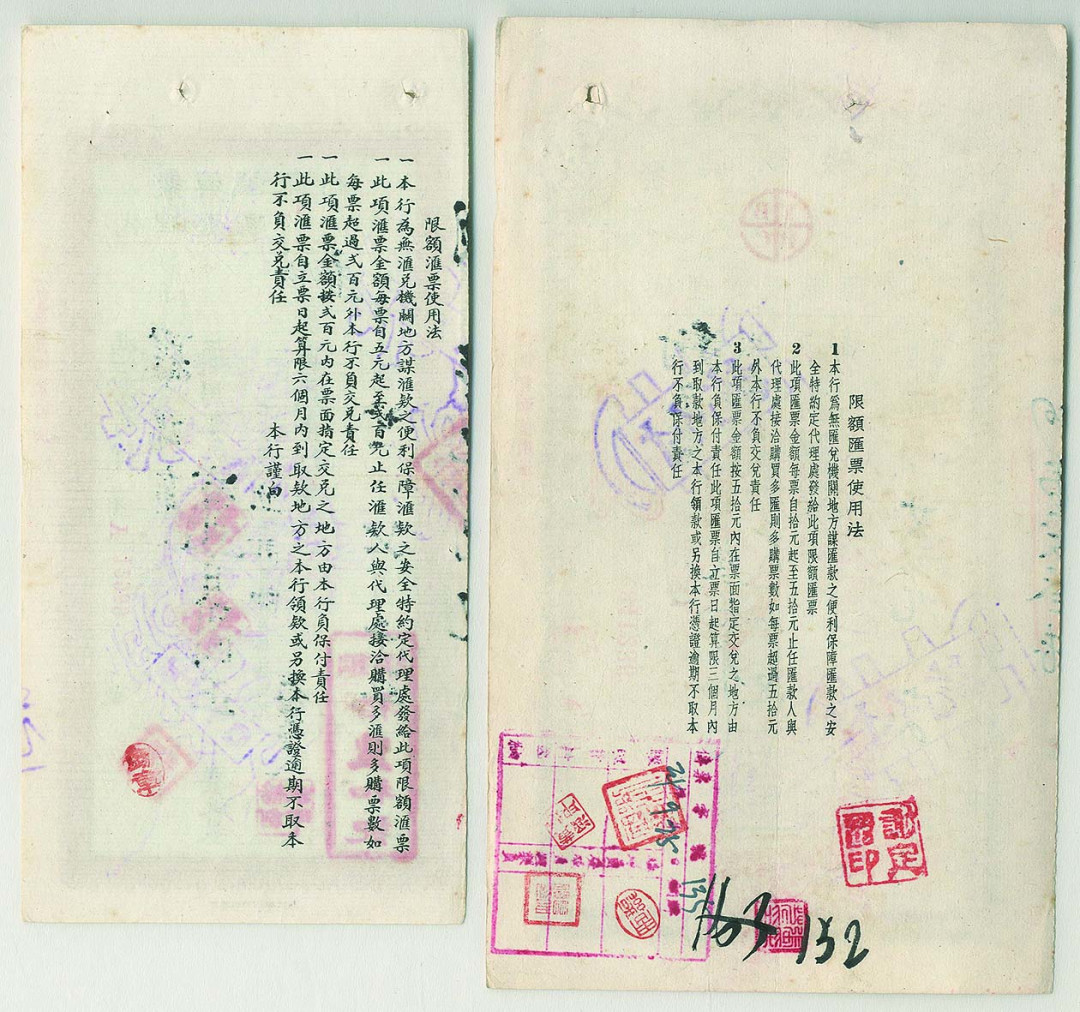 限額滙票使用法
一本行為無滙兑機關地方謀滙欵之便利保障滙欵之安全特約定代理處發給此項限額滙票
一此項滙票金額每票自五元起至弍百元止任滙欵人與代理處接洽購買多滙則多購票數如
每票超過弍百元外本行不負交兑責任
一此項滙票金額按弍百元内在票面指定交兑之地方由本行負保付責任
一此項滙票自立票日起算限六個月内到取欵地方之本行領欵或另換本行憑證逾期不取本
行不負交兑責任
本行謹白
限額匯票使用法
1本行爲無匯兌機關地方謀匯款之便利保障匯款之安
全特約定代理處發給此項限額匯票
2此項匯票金額每票自拾元起至五拾元止任匯款人與
代理處接洽購買多匯則多購票數如每票超過五拾元
外本行不負交兌責任
3此項匯票金額按五拾元內在票面指定交兌之地方由
本行負保付責任此項匯票自立票日起算限三個月內
到取款地方之本行領款或另換本行憑證逾期不取本
行不負保付責任
字號
135
163
152